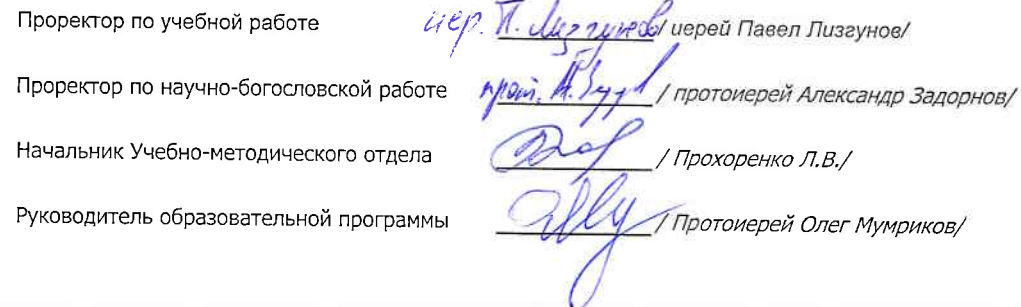 Проректор по учебной работе иер. П. Лизгунов/ иерей Павел Лизгунов/
Проректор по научно-богословской работе прот. А. / протоиерей Александр Задорнов/
Начальник Учебно-методического отдела / Прохоренко Л.В./
Руководитель образовательной программы / Протоиерей Олег Мумриков/